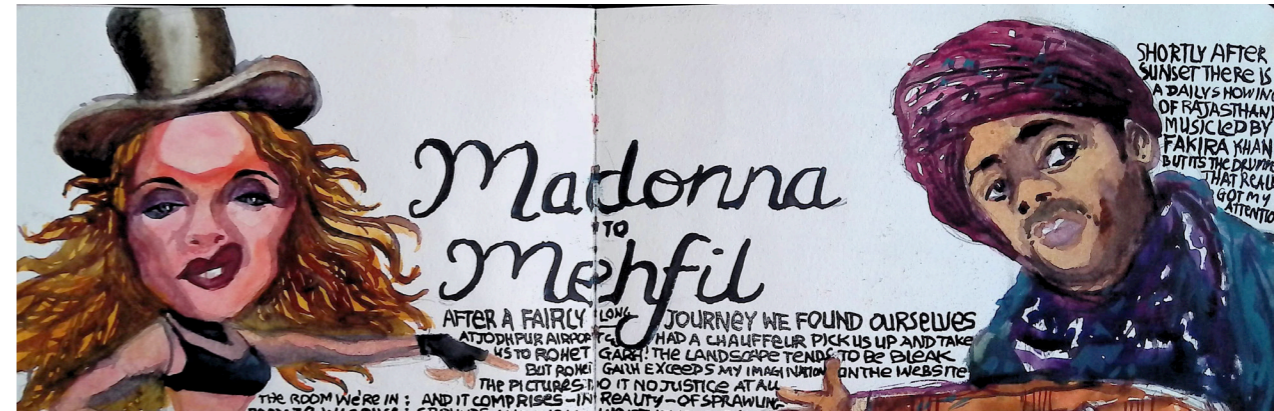 Madonna
TO
Mehfil
AFTER A FAIRLY LONG JOURNEY WE FOUND OURSELVES
AT JODHPUR AIRPORT HAD A CHAUFFEUR PICK US UP AND TAKE
US TO ROHET GARH! THE LANDSCAPE TENDS TO BE BLEAK
BUT ROHET GARH EXCEEDS MY IMAGINATION ON THE WEBSITE
THE PICTURES DO IT NO JUSTICE AT ALL
THE ROOM WE'RE IN: AND IT COMPRISES-IN REALITY-OF SPRAWLING
SHORTLY AFTER
SUNSET THERE IS
A DAILY SHOWING
OF RAJASTHANI
MUSIC LED BY
FAKIRA KHAN
BUT ITS THE DRUMMER
THAT REALLY
GOT MY
ATTENTIO